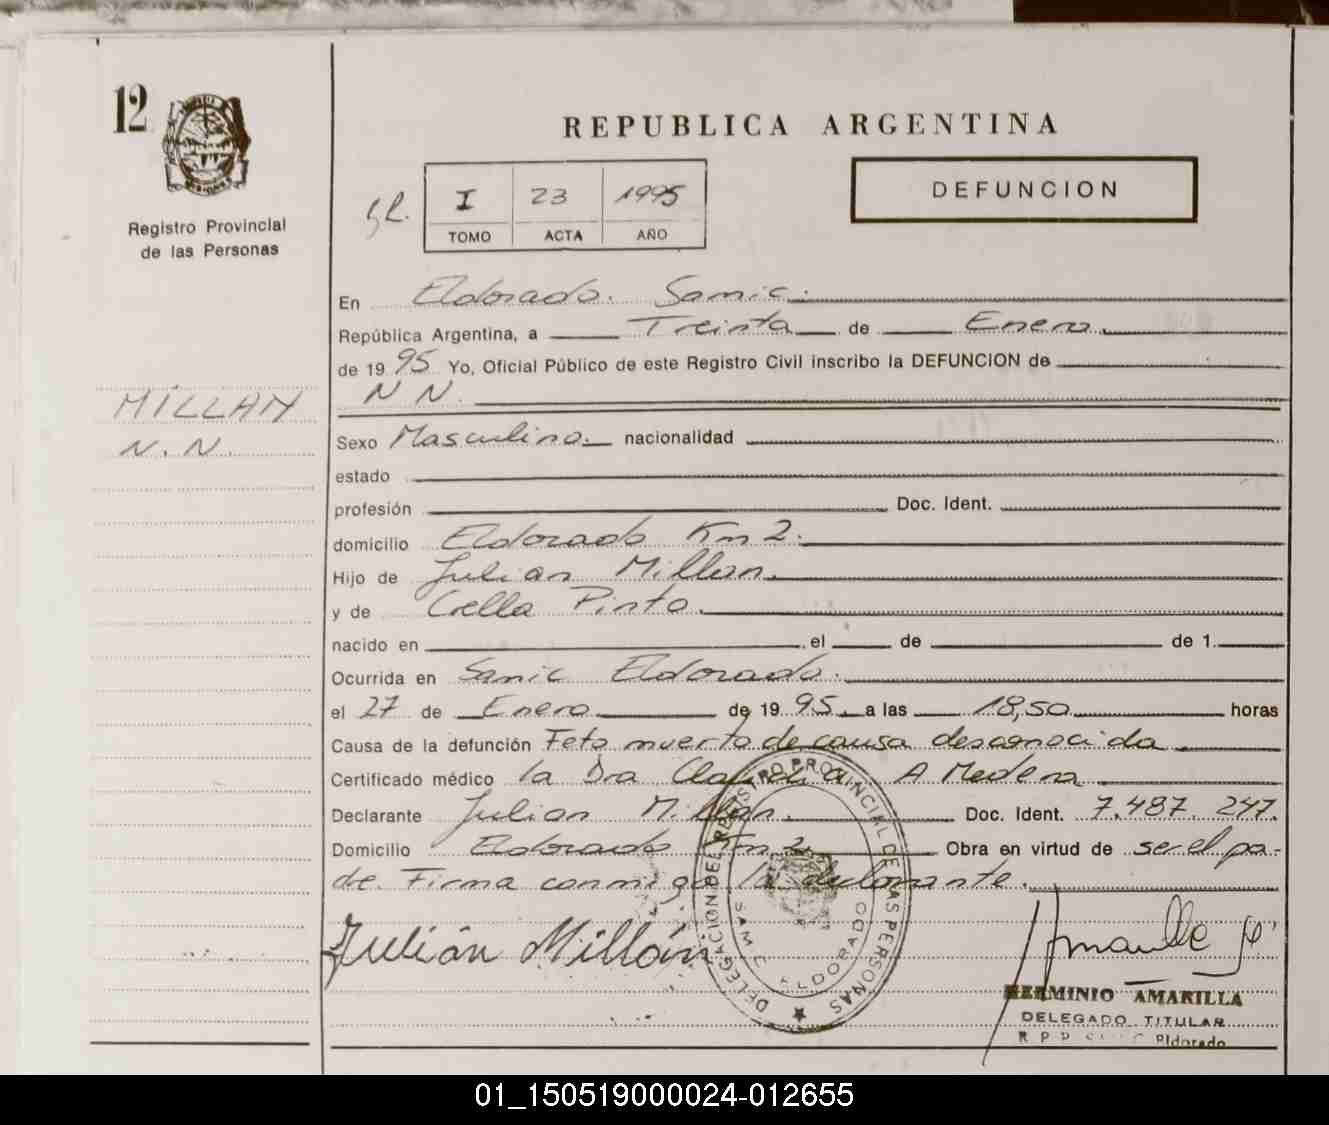 12
Registro Provincial
de las Personas
MILLAN
N. N.
REPUBLICA ARGENTINA
I 23 1995
TOMO ACTA AÑO
DEFUNCION
En Eldorado. Samic.
República Argentina, a Treinta de Enero
de 1995 Yo, Oficial Público de este Registro Civil inscribo la DEFUNCION de
N N.
Sexo Masculino. nacionalidad
estado
profesión Doc. Ident.
domicilio Eldorado Km 2.
Hijo de Julian Millan.
y de Crella Pinto.
nacido en el de de 1.
Ocurrida en Samic Eldorado.
el 27 de Enero de 1995 a las 18,50 horas
Causa de la defunción Feto muerto de causa desconocida
Certificado médico la Dra Claudia A Medera
Declarante Julian Millan. Doc. Ident. 7.487.247.
Domicilio Eldorado Km 2 Obra en virtud de ser el pa-
dre. Firma conmigo la declarante.
Julián Millán
DELEGACION DEL REGISTRO PROVINCIAL DE LAS PERSONAS
SAMIC ELDORADO
HERMINIO AMARILLA
DELEGADO TITULAR
Eldorado
01_150519000024-012655